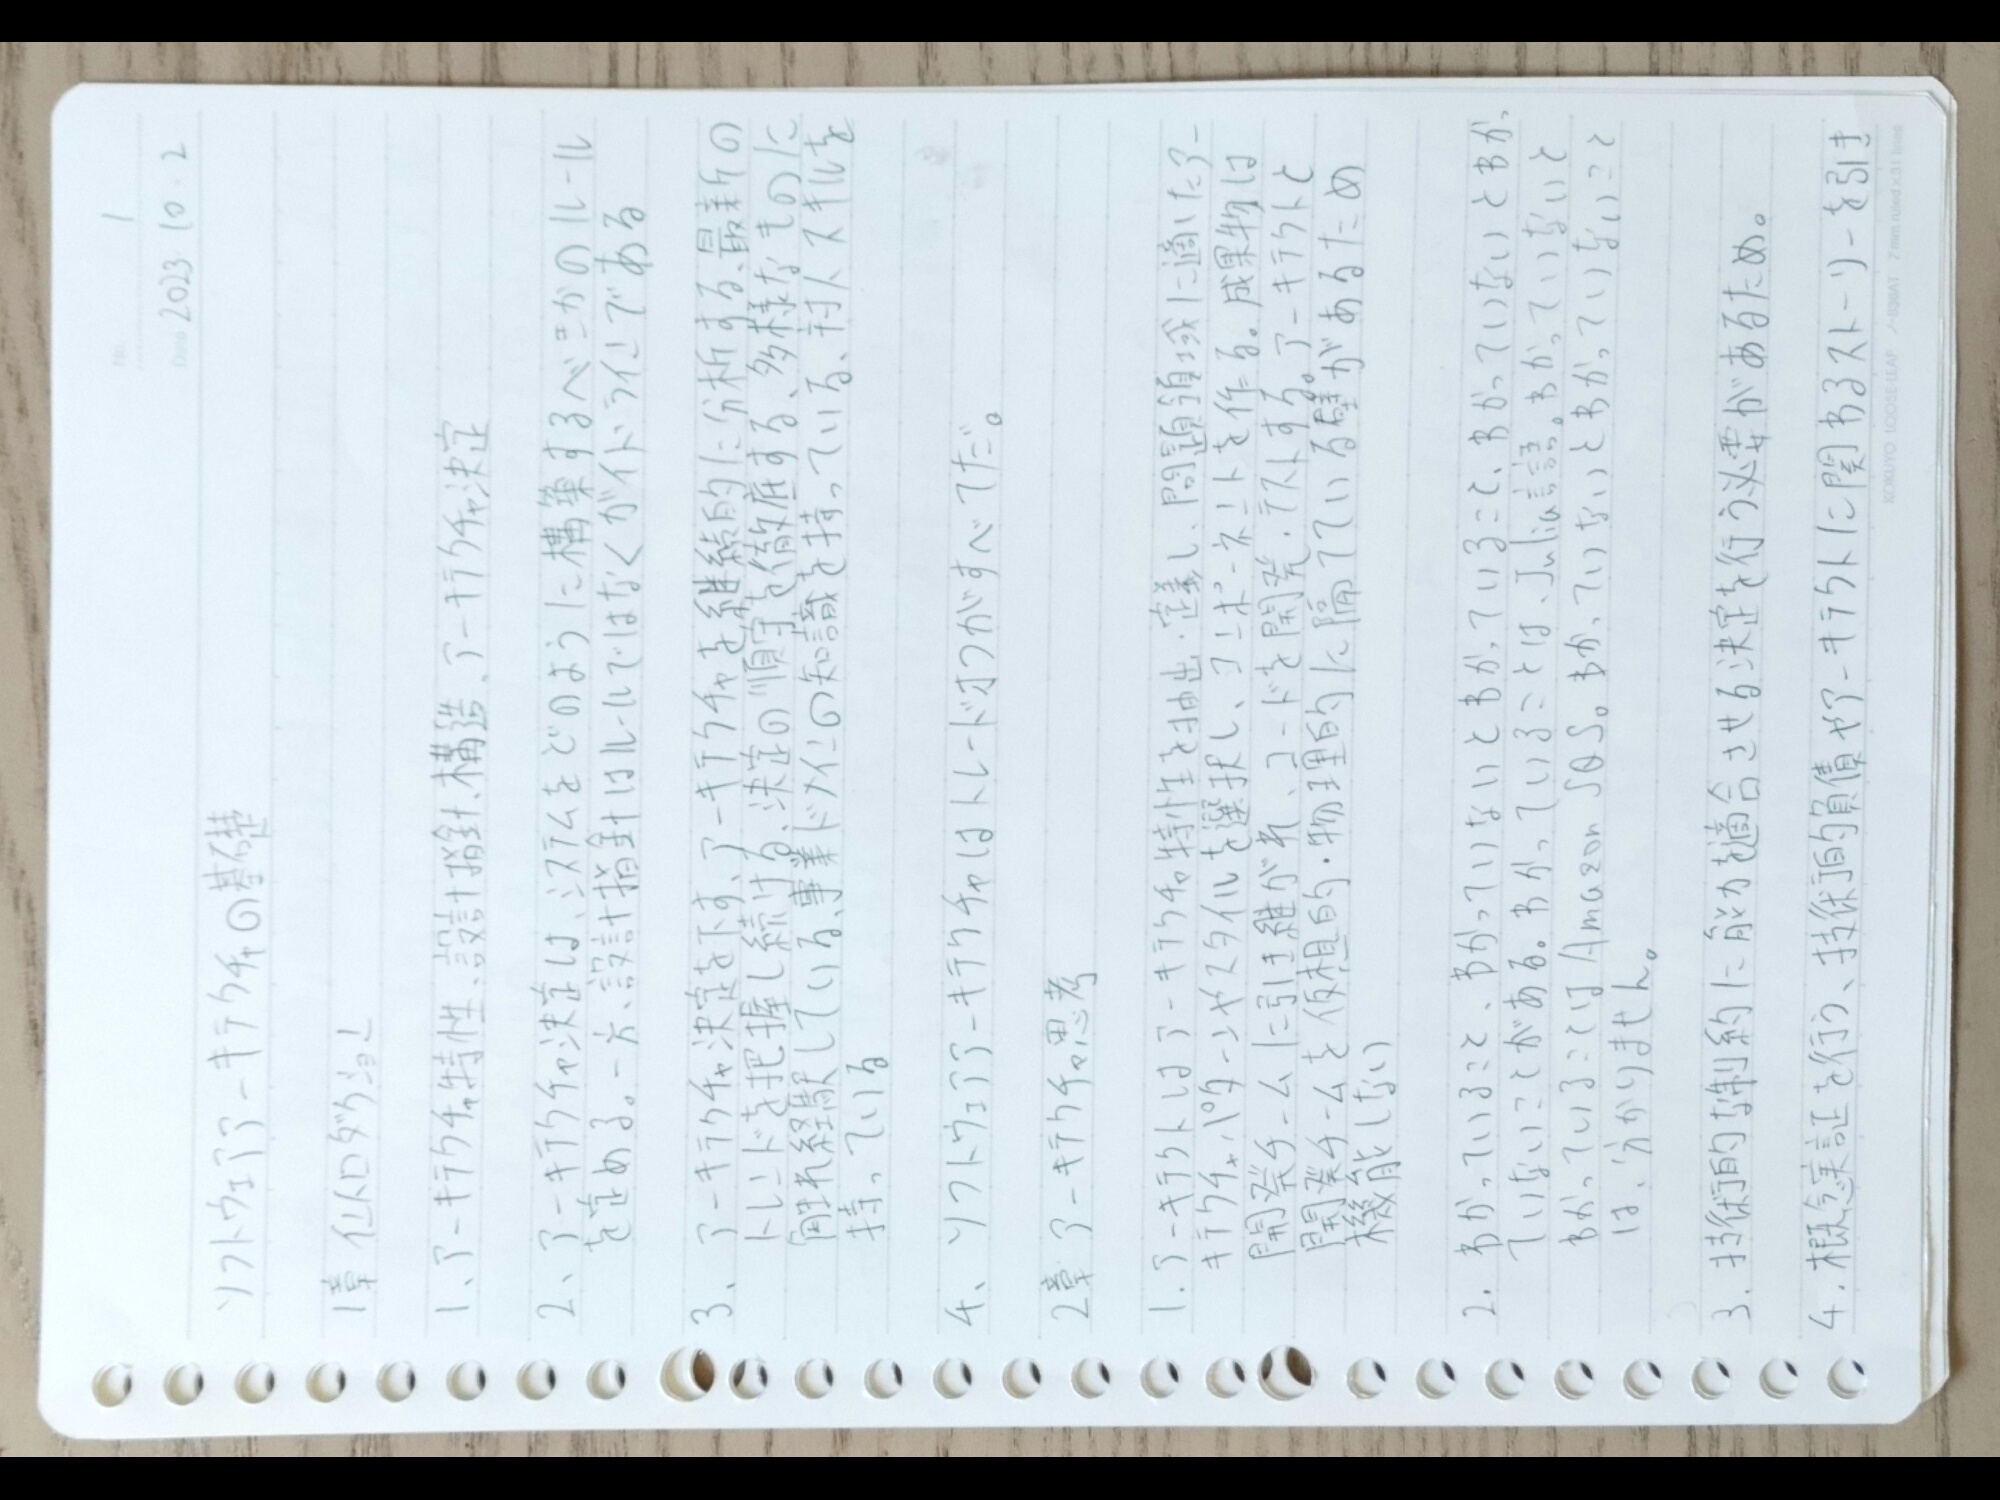 No. 1
Date 2023・10・2
ソフトウェアアーキテクチャの基礎
1章 イントロダクション
1、アーキテクチャ特性、設計指針、構造、アーキテクチャ決定
2、アーキテクチャ決定は、システムをどのように構築するべきかのルール
を定める。一方、設計指針はルールではなくガイドラインである
3、アーキテクチャ決定を下す、アーキテクチャを継続的に分析する、最新の
トレンドを把握し続ける、決定の順守を徹底する、多様なものに
触れ経験している、事業ドメインの知識を持っている、対人スキルを
持っている
4、ソフトウェアアーキテクチャはトレードオフがすべてだ。
2章 アーキテクチャ思考
1. アーキテクトはアーキテクチャ特性を抽出・定義し、問題領域に適したアー
キテクチャパターンやスタイルを選択し、コンポーネントを作る。成果物は
開発チームに引き継がれ、コードを開発・テストする。アーキテクトと
開発チームを仮想的・物理的に隔てている壁があるため
機能しない
2. わかっていること、わかっていないとわかっていること、わかっていないとわかっ
ていないことがある。わかっていることは、Julia言語。わかっていないと
わかっていることはAmazon SQS。わかっていないとわかっていないこと
は、分かりません。
3. 技術的な制約に能力を適合させる決定を行う必要があるため。
4. 概念実証を行う、技術的負債やアーキテクトに関わるストーリーを引き
KOKUYO LOOSE-LEAF ノ-836AT 7mm ruled×31 lines